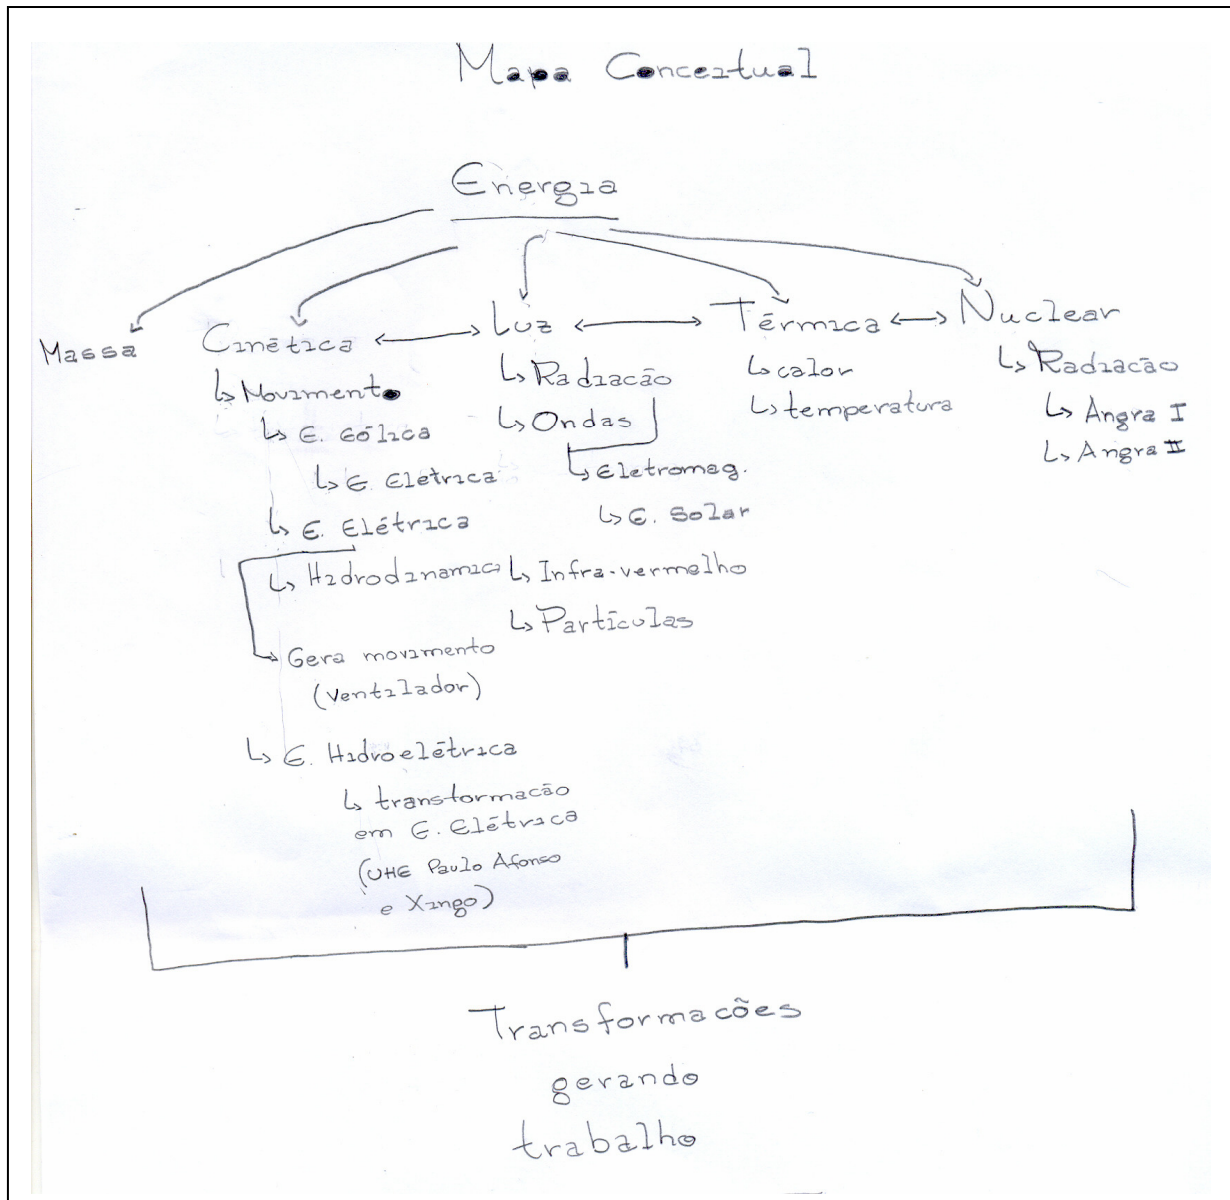 Mapa Conceitual
Energia
Massa
Cinética
Luz
Térmica
Nuclear
Movimento
E. Eólica
E. Elétrica
E. Elétrica
Hidrodinamica
Gera movimento
(Ventilador)
E. Hidroelétrica
transformacão
em E. Elétrica
(UHE Paulo Afonso
e Xingo)
Radiacão
Ondas
Eletromag.
E. Solar
Infra-vermelho
Partículas
calor
temperatura
Radiacão
Angra I
Angra II
Transformacões
gerando
trabalho